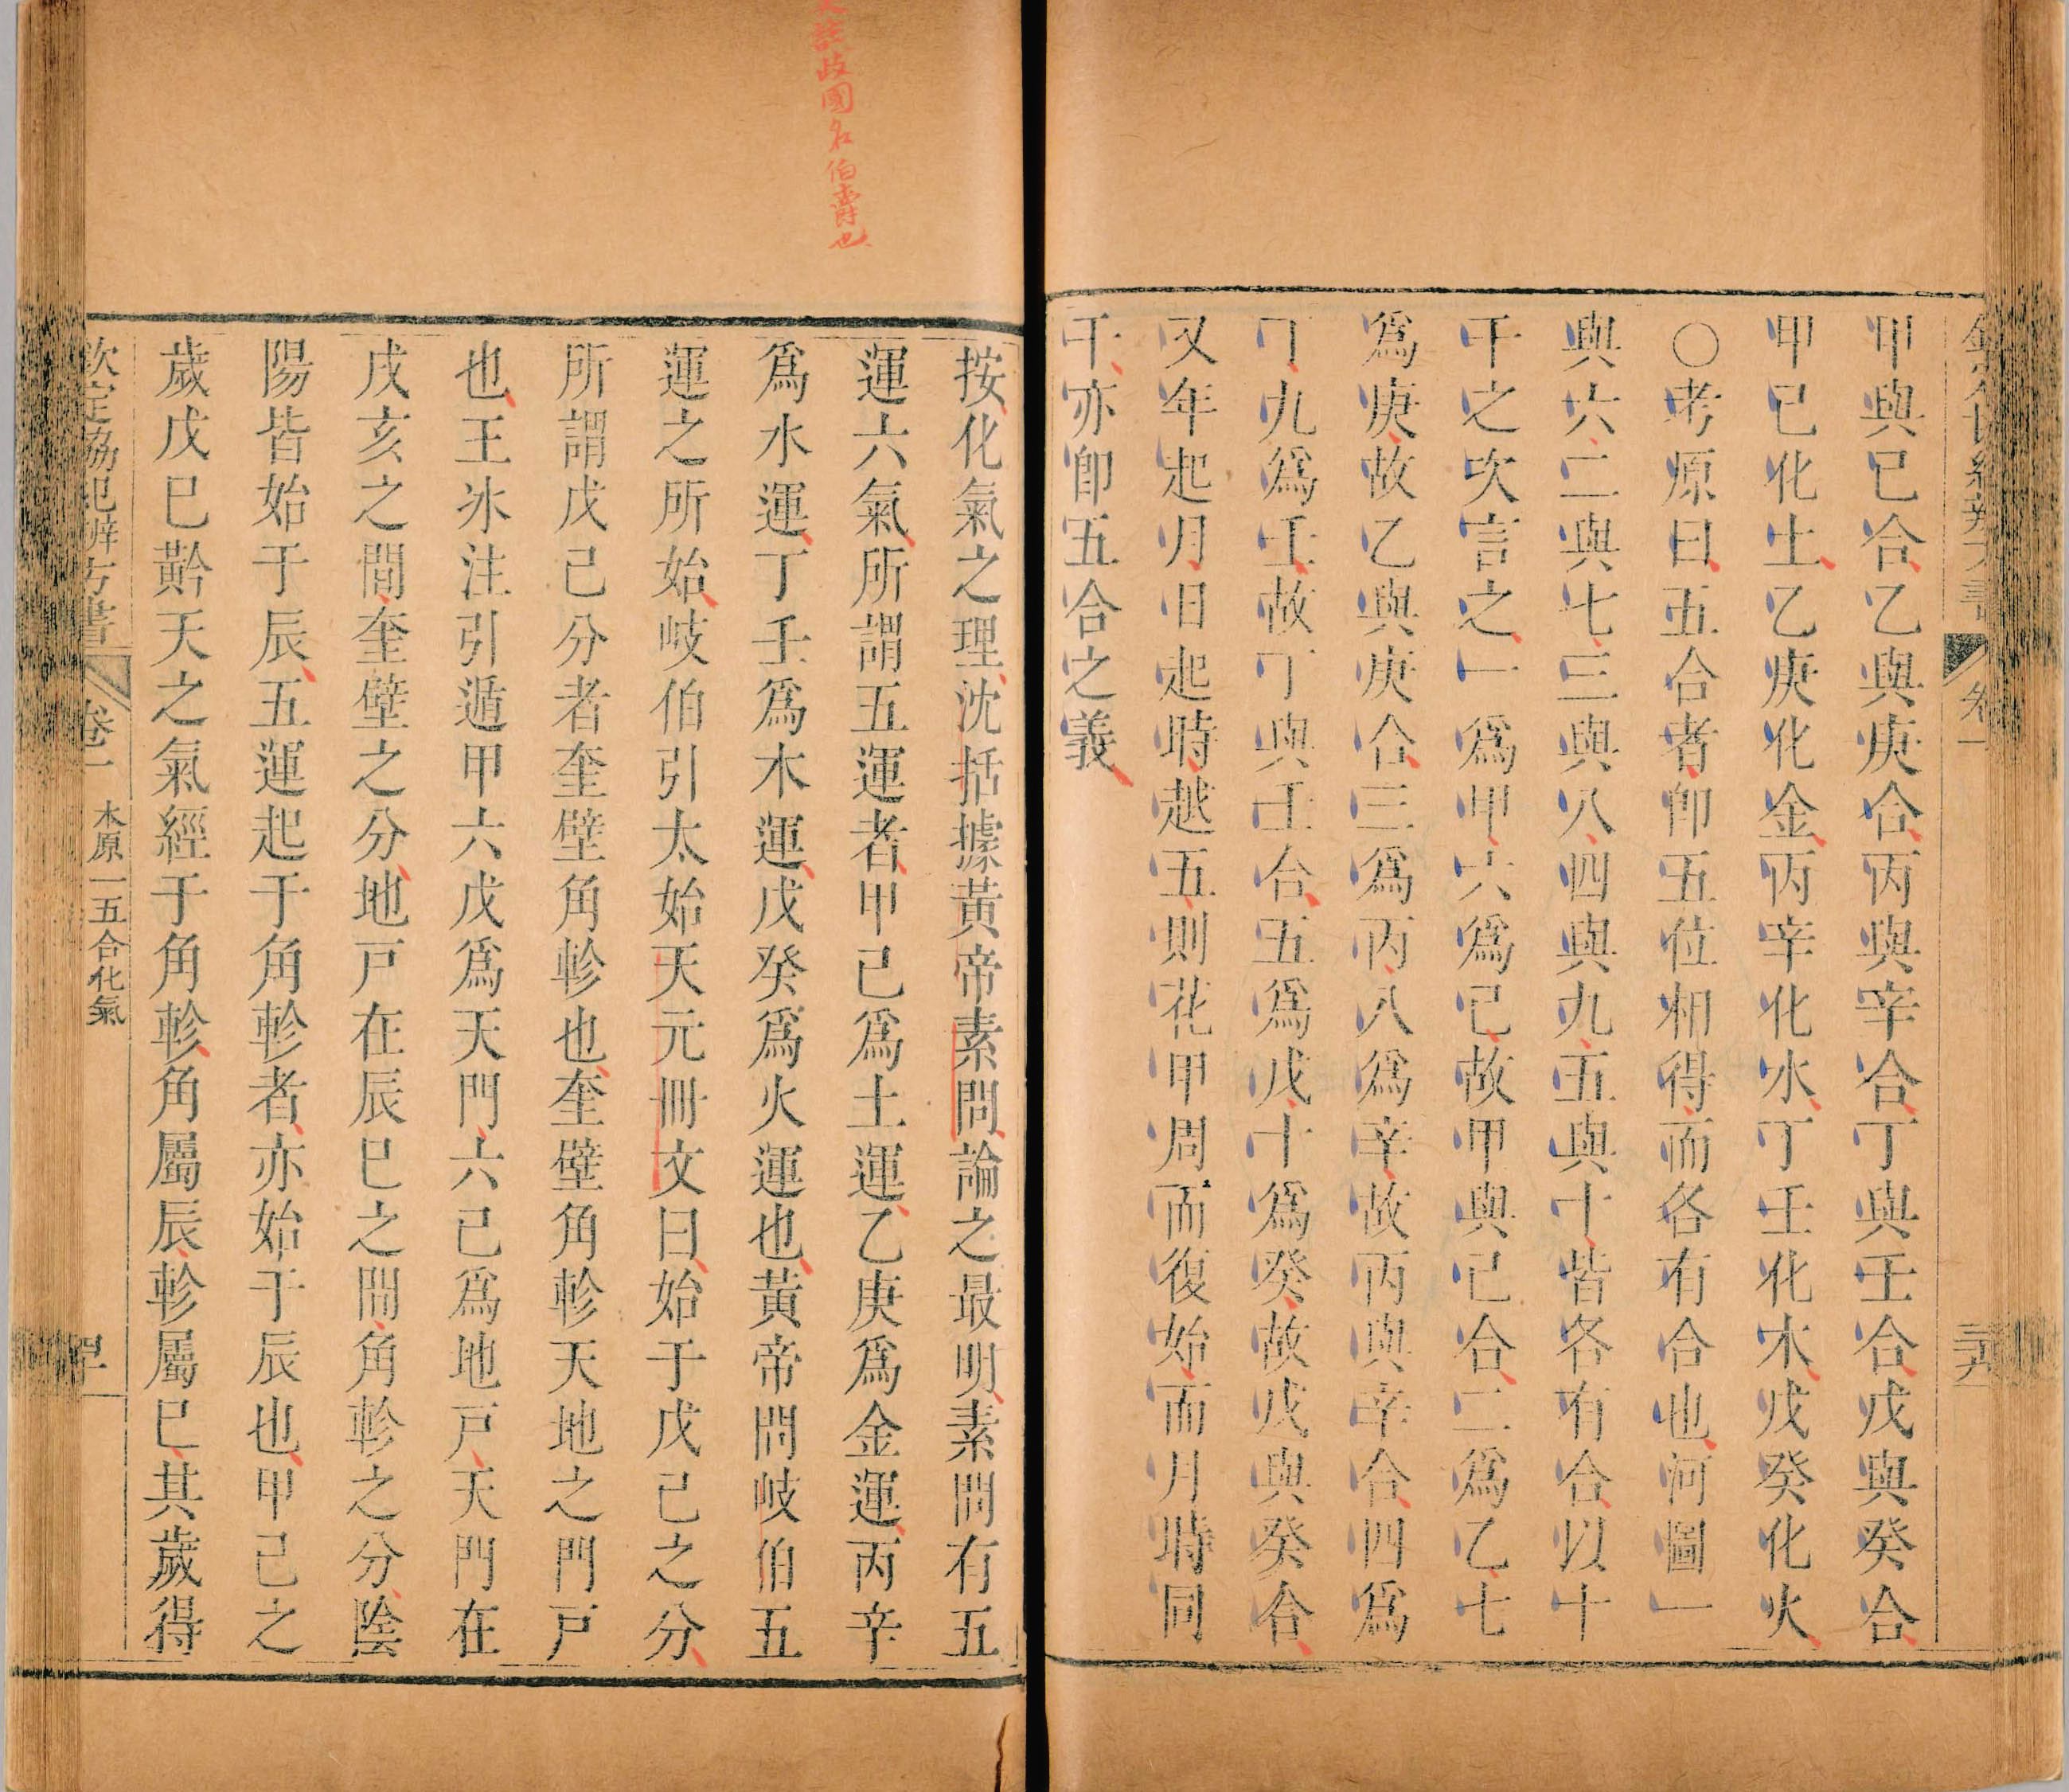 甲與己合乙與庚合丙與辛合丁與壬合戊與癸合
甲己化土乙庚化金丙辛化水丁壬化木戊癸化火
○考原曰五合者卽五位相得而各有合也河圖一
與六二與七三與八四與九五與十皆各有合以十
干之次言之一爲甲六爲己故甲與己合二爲乙七
爲庚故乙與庚合三爲丙八爲辛故丙與辛合四爲
丁九爲壬故丁與壬合五爲戊十爲癸故戊與癸合
又年起月日起時越五則花甲周而復始而月時同
干亦卽五合之義
卷一
按化氣之理沈括據黃帝素問論之最明素問有五
運六氣所謂五運者甲己爲土運乙庚爲金運丙辛
爲水運丁壬爲木運戊癸爲火運也黃帝問岐伯五
運之所始岐伯引太始天元冊文曰始于戊己之分
所謂戊己分者奎壁角軫也奎壁角軫天地之門戶
也王冰注引遁甲六戊爲天門六己爲地戶天門在
戌亥之間奎壁之分地戶在辰巳之間角軫之分陰
陽皆始于辰五運起于角軫者亦始于辰也甲己之
歲戊己黅天之氣經于角軫角屬辰軫屬巳其歲得
欽定協紀辨方書 卷一 本原一五合化氣
岐國名伯爵也